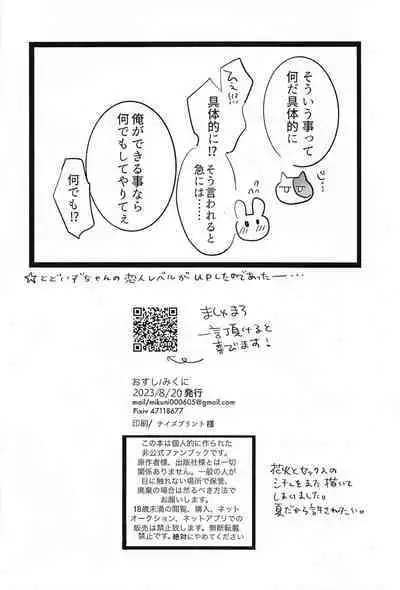 そういう事って
何だ具体的に
ひえ!!?
具体的に!?
そう言われると
急には……
俺ができる事なら
何でもしてやりてえ
何でも!?
☆とどいずちゃんの恋人レベルがUPしたのであった―…
ましゅまろ
一言頂けると
喜びます!
おすし/みくに
2023/8/20 発行
mail/mikuni000605@gmail.com
Pixiv 47118677
印刷/ テイズプリント様
この本は個人的に作られた
非公式ファンブックです。
原作者様、出版社様とは一切
関係ありません。一般の人が
目に触れない場所で保管、
廃棄の場合は然るべき方法で
お願いします。
18歳未満の閲覧、購入、ネット
オークション、ネットアプリでの
販売は禁止致します。無断転載
禁止です。絶対にやめてください
花火とセックスの
シチュをまた描いて
しまいました。
夏だから許されたい。